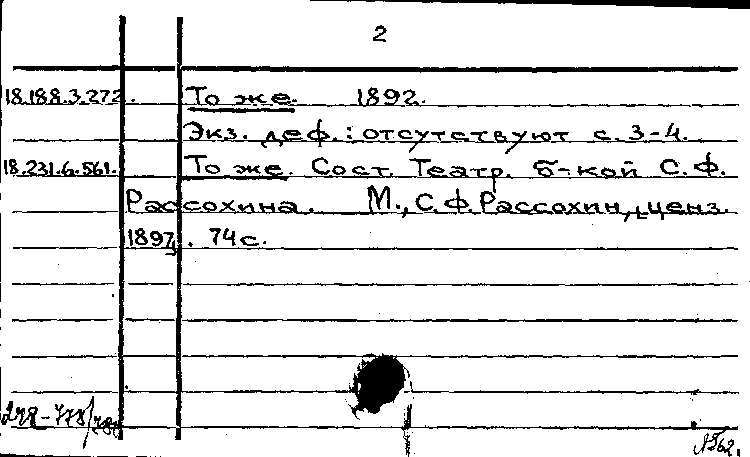 2
18.188.3.272. То же. 1892.
Экз. деф.: отсутствуют с. 3-4.
18.231.6.561. То же. Сост. Театр. б-кой С. Ф.
Рассохина. М., С. Ф. Рассохин, [ценз.
1897]. 74 с.